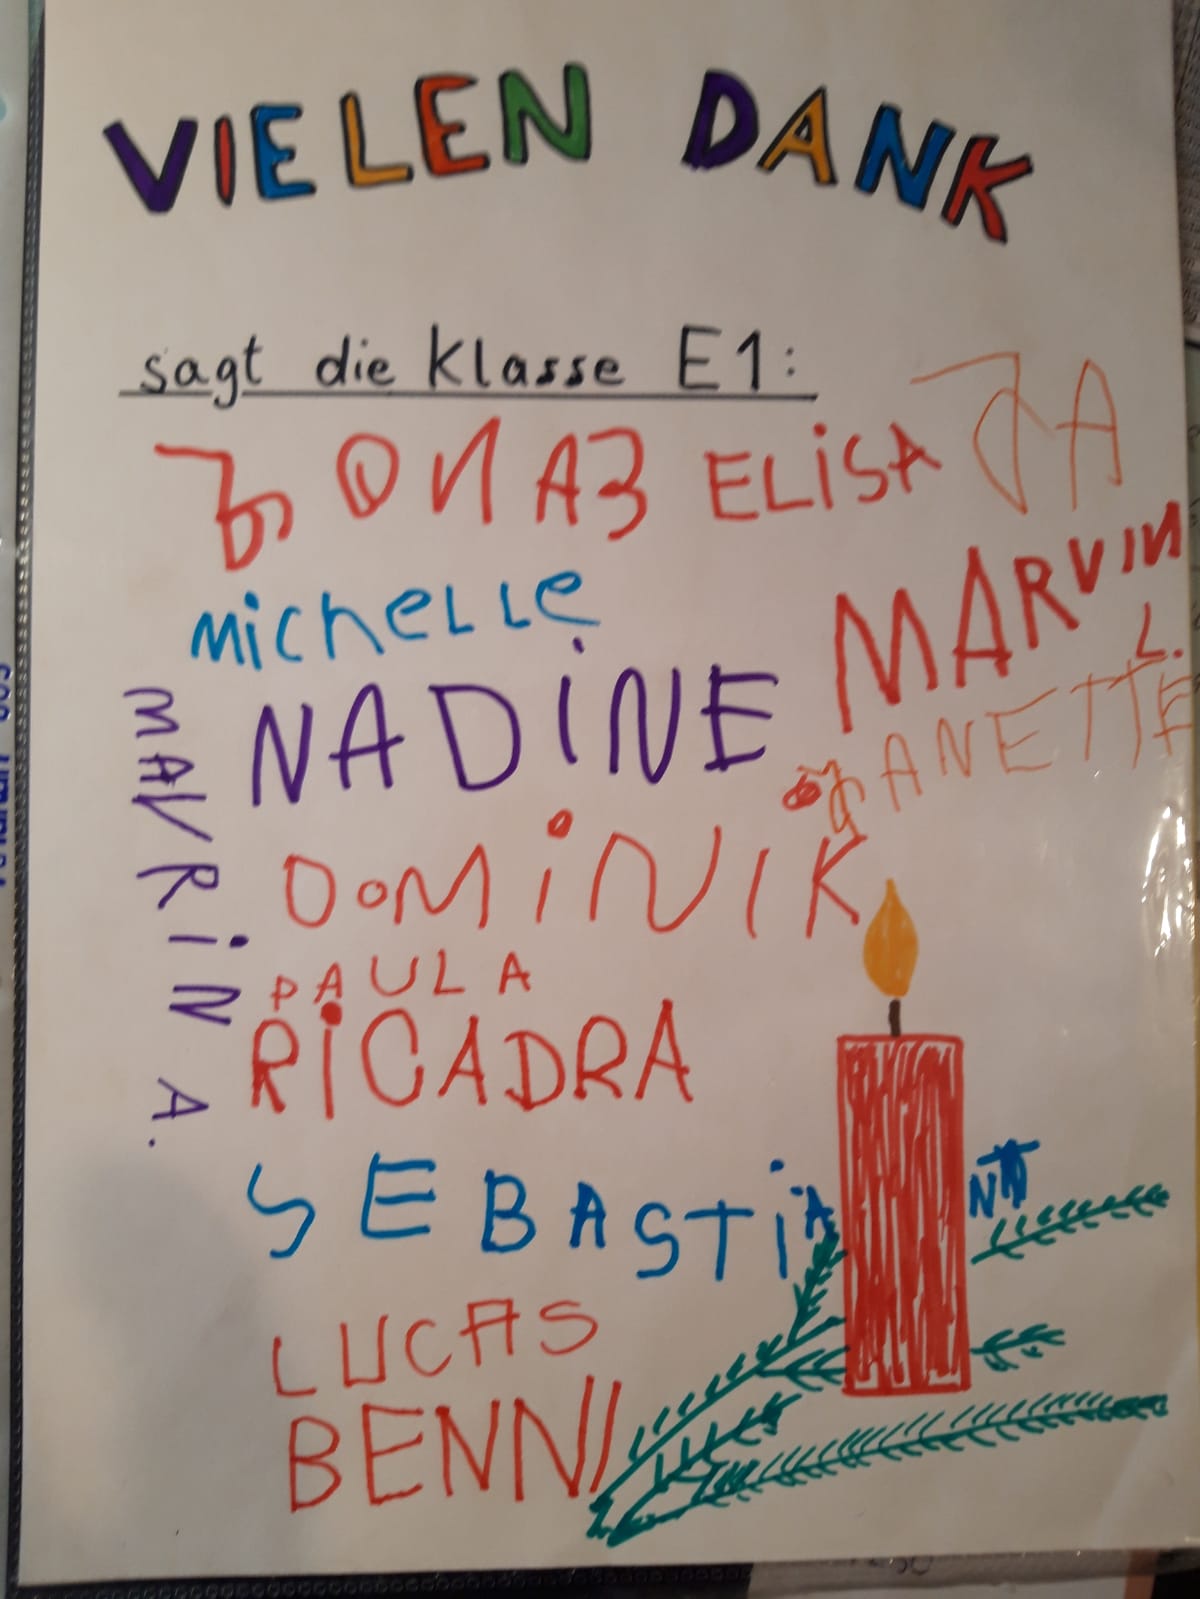 VIELEN DANK
sagt die Klasse E1:
JONAS ELiSA
MichELLe
MARVIN
L.
NADiNE
JANETTE
MAVRiN A.
DOMiNIK
PAULA
RiCADRA
SEBASTiAN
LUCAS
BENNI